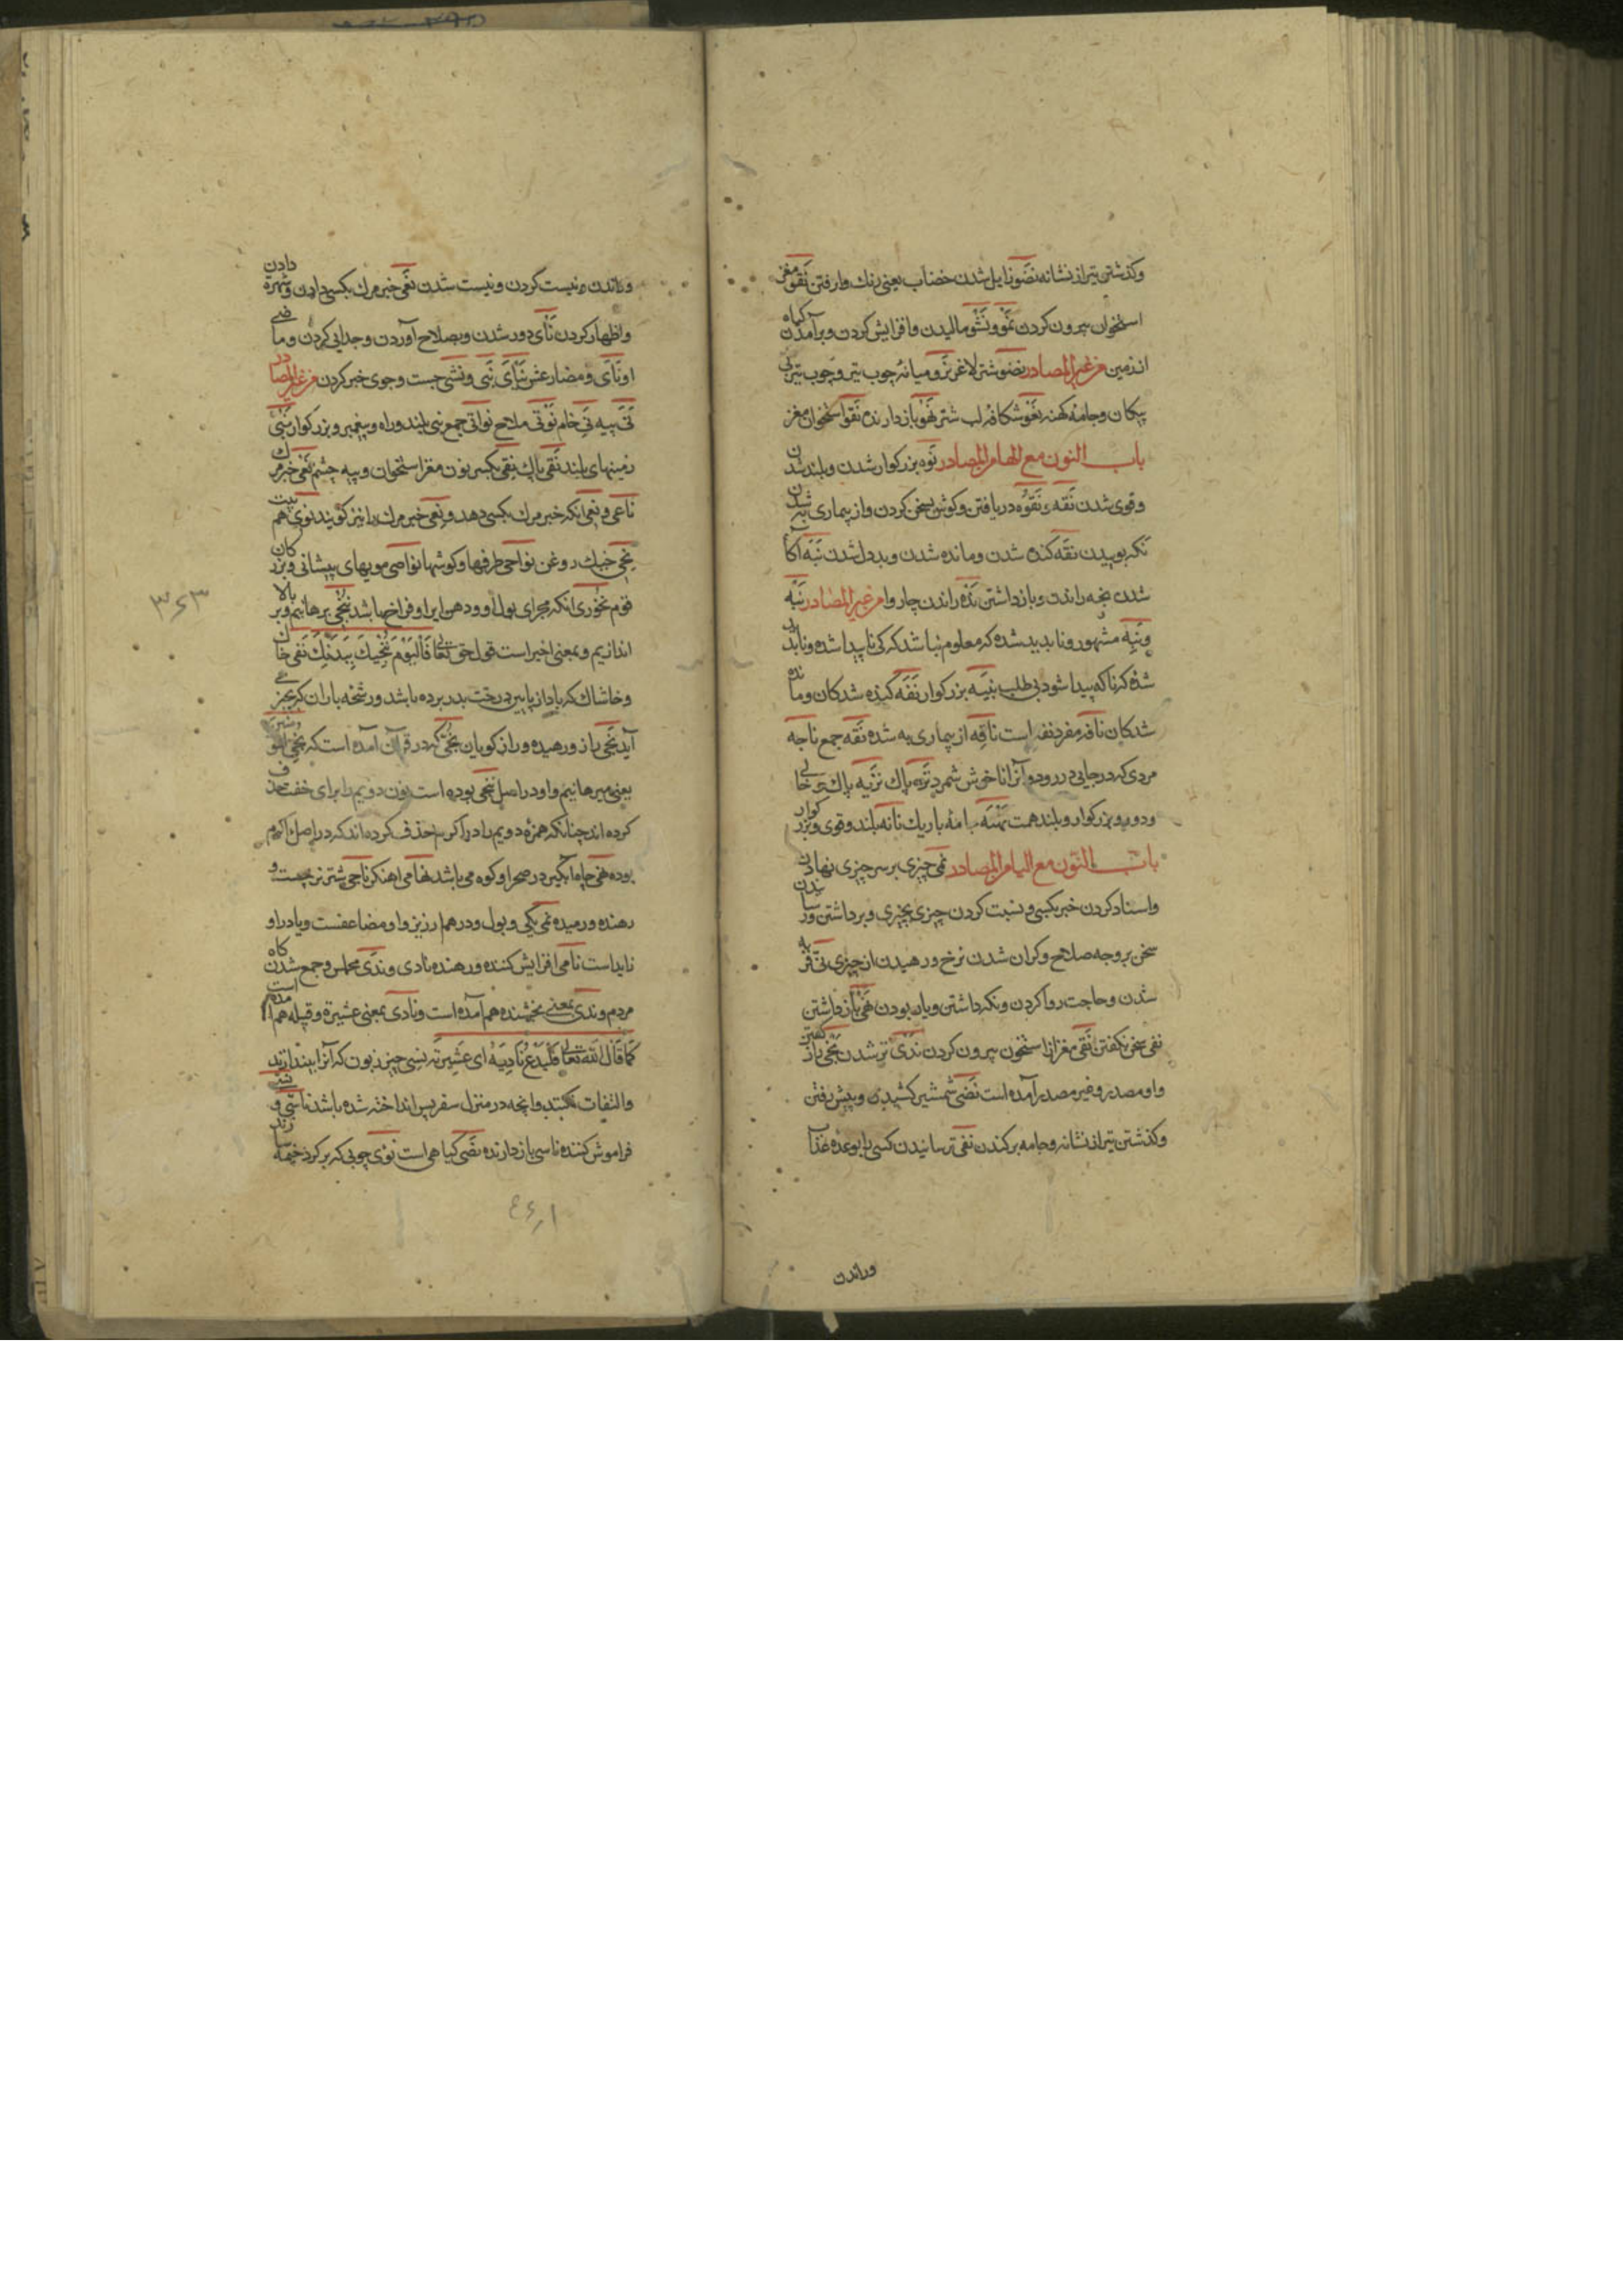 وکذشتن تیر از نشانه نضو زایل شدن خضاب یعنی رنك وا رفتن نقو مغز
استخوان بیرون کردن نمو و نشو مالیدن وافزایش کردن و برآمدن کیاه
از زمین من غیر المصادر نضو شتر لاغر نزو میانهٔ چوب تیر و چوب تیر بی
پیکان وجامهٔ کهنه نعو شکاف لب شتر نهو بازدارنده نقو استخوان مغز
باب النون مع الهاء من المصادر نوه بزرکوار شدن و بلند شدن
وقوی شدن نقه و نقوه دریافتن وکوش بسخن کردن و از بیماری به شدن
نکه بوییدن نفه کنده شدن و مانده شدن و بددل شدن نبه آکاٰ
شدن نجه راندن و بازداشتن نده راندن چاروا من غیر المصادر نبه
و نبه مشهور و ناپدید شده که معلوم نباشد که کی ناپیدا شده و ناپدید
شده که ناکه پیدا شود بی طلب نبیه بزرکوار نفه کنده شدکان و مانده
شدکان نافه مفرد نفه است ناقه از بیماری به شده نقه جمع ناجه
مردی که در جایی در رود و آنرا ناخوش شمرد نزه پاك نزیه پاك و خالی
ودور و بزرکوار و بلند همت نهنه جامهٔ باریك نانه بلند وقوی و بزرکوار
باب النون مع الیاء من المصادر نمی چیزی بر سر چیزی نهادن
واسناد کردن خبر بکسی و نسبت کردن چیزی بچیزی و برداشتن و رساندن
سخن بر وجه صلاح وکران شدن نرخ و رهیدن از چیزی نی فربه
شدن وحاجت روا کردن و نکه داشتن و یار بودن نهی بازداشتن
نفی سخن نکفتن نقی مغز از استخون بیرون کردن ندی تر شدن نجی باز کفتن
واو مصدر وغیر مصدر آمده است نضی شمشیر کشیدن و پیش رفتن
وکذشتن تیر از نشانه وجامه برکندن نفی ترسانیدن کسی را بوعده عذاٰ
وراندن
وراندن و نیست کردن و نیست شدن نعی خبر مرك بکسی دادن و شهره دادن
واظهار کردن نأی دور شدن و بصلاح آوردن وجدایی کردن و ماضی
او نأی و مضارعش ینأی نبی و نشی جست وجوی خبر کردن من غیر المصادر
نی پیه نی خام نوتی ملاح نواتی جمع نبی بلند و راه و پیغمبر و بزرکوار نبی
زمینهای بلند نقی پاك نقی بکسر نون مغز استخوان و پیه چشم نعی خبر مرك
ناعی و نعی انکه خبر مرك بکسی دهد و نعی خبر مرك را نیز کویند نوی هم نیت
نحی خیك روغن نواحی طرفها وکوشها نواصی مویهای پیشانی و بزرکان
قوم نخوری انکه مجرای بول او و دهن ایر او فراخ باشد ننجی برهانیم و بر بالا
اندازیم و بمعنی اخیر است قول حق تعالی فَالْیَوْمَ نُنَجِّیكَ بِبَدَنِكَ نفی خاك
وخاشاك که باد از پایین درخت بدر برده باشد و رشحهٔ باران که بجزی
آید نجی باز ورهیده و راز کویان نجی که در قرآن آمده است که نجی المؤمنین
یعنی میرهانیم و او در اصل ننجی بوده است نون دویم را برای خفت حذف
کرده اند چنانکه همزهٔ دویم را در اکرم حذف کرده اند که در اصل ااکرم
بوده نهی چاه ابکیر در صحرا وکوه می باشد نهامی اهنکر ناجی شتر نر چست و
رهنده ورمیده نمی یکی و پول و درهم ارزیز و او مضاعفست ویا در او
زایداست نامی افزایش کننده و رهنده نادی و ندی مجلس وجمع شدن کاه
مردم و ندی بمعنی بخشنده هم آمده است و نادی بمعنی عشیره و قبیله هم آمده است
کَمَا قَالَ اللهُ تَعَالی فَلْیَدْعُ نَادِیَهُ ای عَشِیرته نسی چیز زبون که آنرا بیندازند
والتفات نکنند وانچه در منزل سفر پس انداخته شده باشد ناشی و
فراموش کننده ناسی بازدارنده نضی کیاهی است نؤی جویی که بر کرد خیمه سازند
٣٤٣